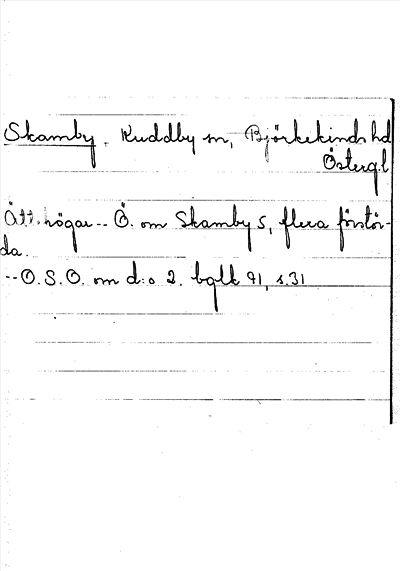 Skamby, Kuddby sn, Björkekinds hd
Östergl
Ätt.högar -- Ö. om Skamby s, flera förstör-
da.
-- O.S.O. om d:o 2. bglk 91, s.31